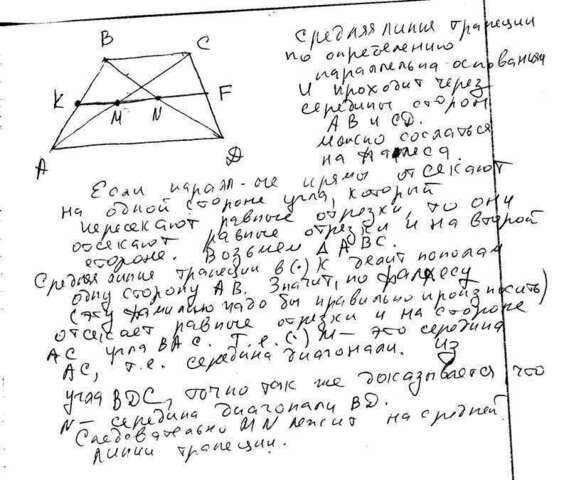 B
C
K
M
N
F
A
D
Средняя линия трапеции
по определению
параллельна основаниям
и проходит через
середины сторон
AB и CD.
Можно сослаться
на Фалеса.
Если паралл-ые прямы отсекают
на одной стороне угла, который
пересекают равные отрезки, то они
отсекают равные отрезки и на второй
стороне. Возьмем Δ ABC.
Средняя линия трапеции в (·) K делит пополам
одну сторону AB. Значит, по Фалесу
(эту фамилию надо бы правильно произносить)
отсекает равные отрезки и на стороне
AC угла BAC. Т.е. (·) M — это середина
AC, т.е. середина диагонали. Из
угла BDC, точно так же доказывается что
N — середина диагонали BD.
Следовательно MN лежит на средней
линии трапеции.